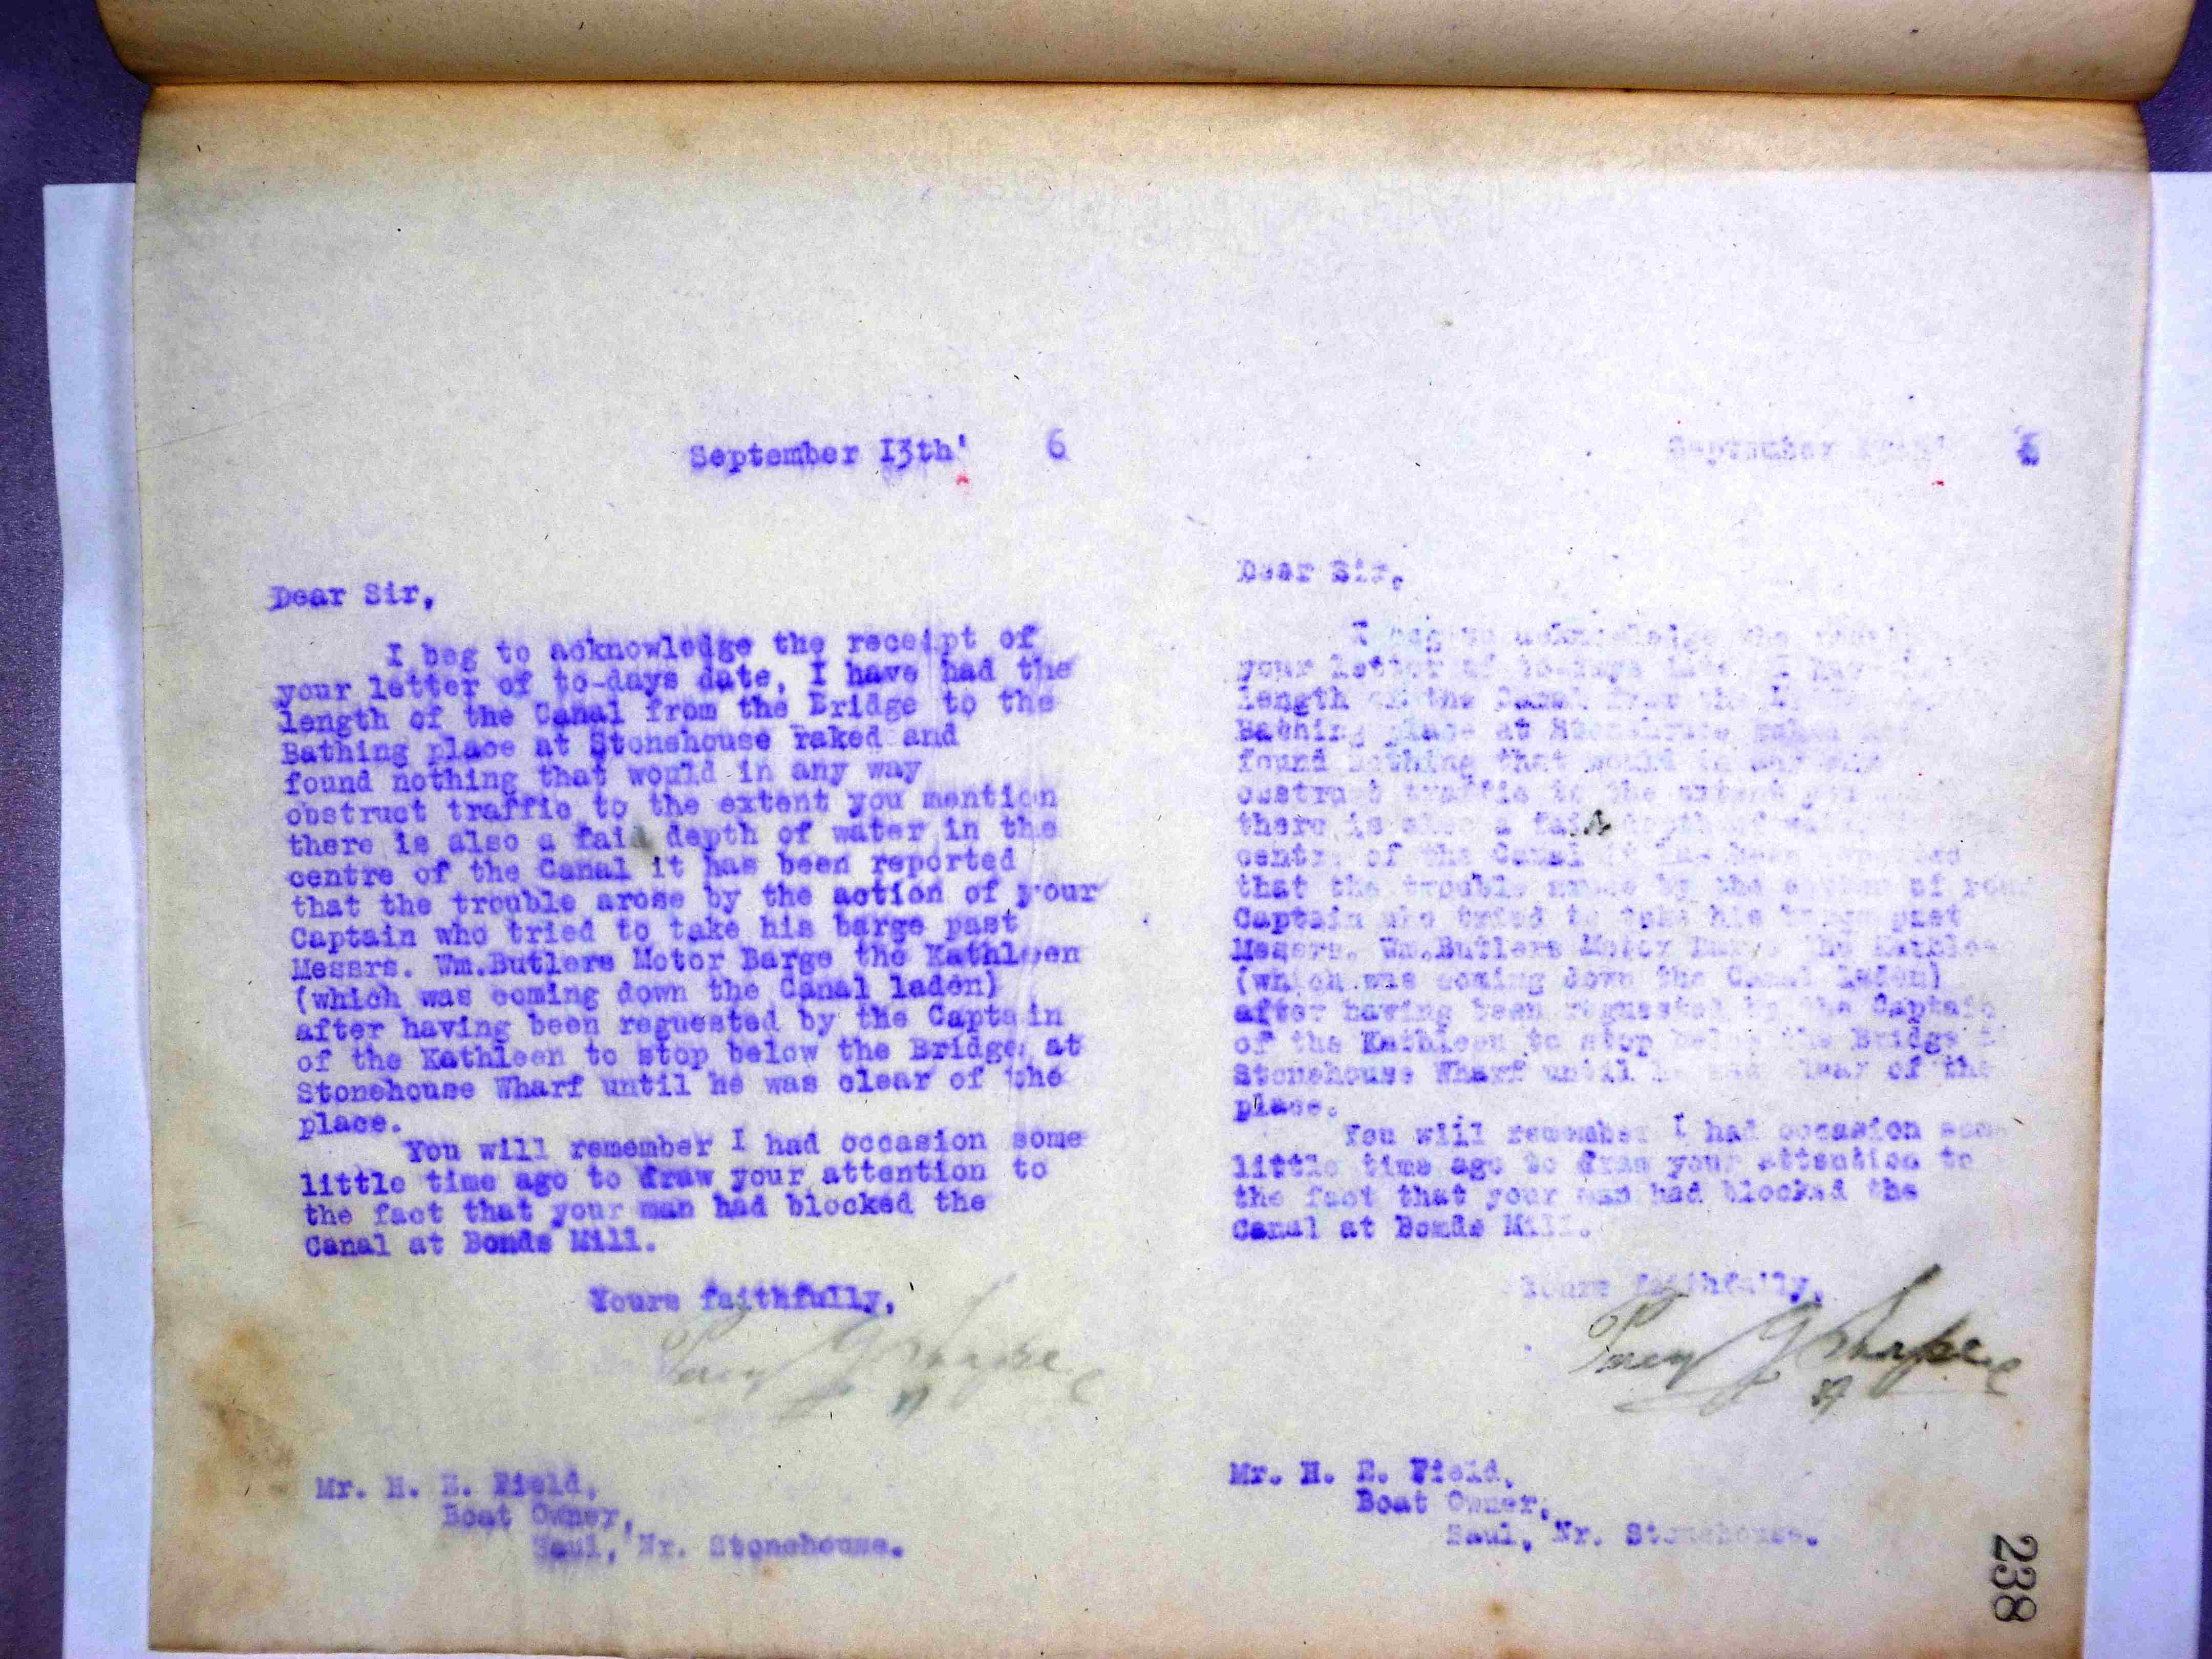 September 13th' 6
Dear Sir,
I beg to acknowledge the receipt of
your letter of to-days date, I have had the
length of the Canal from the Bridge to the
Bathing place at Stonehouse raked and
found nothing that would in any way
obstruct traffic to the extent you mention
there is also a fair depth of water in the
centre of the Canal it has been reported
that the trouble arose by the action of your
Captain who tried to take his barge past
Messrs. Wm.Butlers Motor Barge the Kathleen
(which was coming down the Canal laden)
after having been requested by the Captain
of the Kathleen to stop below the Bridge at
Stonehouse Wharf until he was clear of the
place.
You will remember I had occasion some
little time ago to draw your attention to
the fact that your man had blocked the
Canal at Bonds Mill.
Yours faithfully,
Mr. H. E. Field,
Boat Owner,
Saul, Nr. Stonehouse.
September 6
Dear Sir,
I beg to acknowledge the
your letter of to-days date I have
length of the Canal from the
Bathing place at Stonehouse raked and
found nothing that would in any way
obstruct traffic to the extent you
there is also a fair depth of
centre of the Canal it has been reported
that the trouble arose by the action of your
Captain who tried to take his barge past
Messrs. Wm.Butlers Motor Barge the Kathleen
(which was coming down the Canal laden)
after having been requested by the Captain
of the Kathleen to stop below the Bridge
Stonehouse Wharf until he was clear of the
place.
You will remember I had occasion some
little time ago to draw your attention to
the fact that your man had blocked the
Canal at Bonds Mill.
Yours faithfully,
Mr. H. E. Field,
Boat Owner,
Saul, Nr. Stonehouse.
238